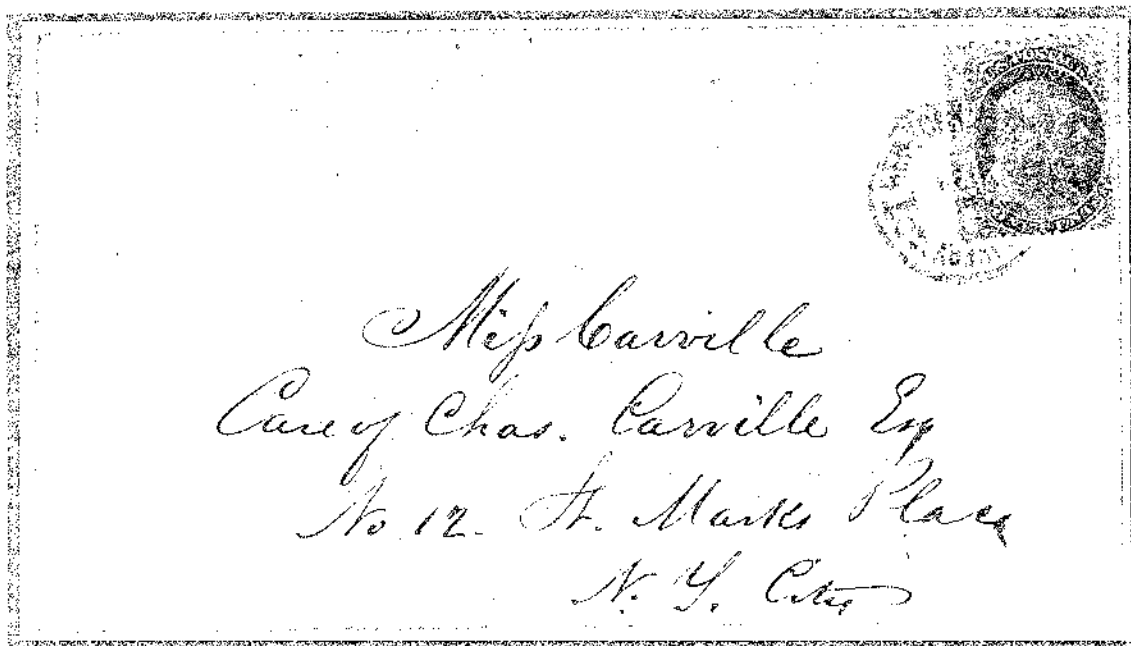 Miss Carville
Care of Chas. Carville Esq
No 12. St. Marks Place
N. Y. City